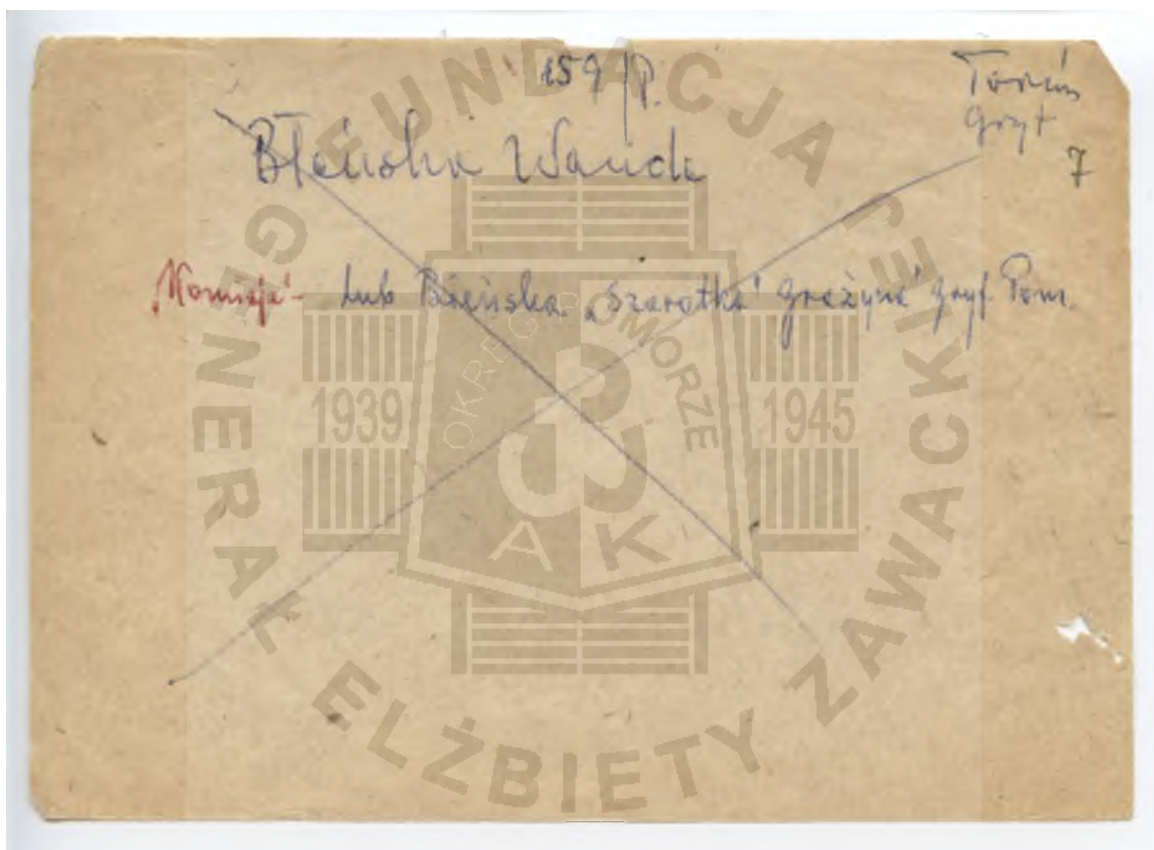 159/P.
Toruń
Gryf
7
Błeńska Wanda
lub Błeńska „Szarotka" Grażyna Gryf. Pom.
FUNDACJA GENERAŁ ELŻBIETY ZAWACKIEJ
OKRĘG POMORZE
1939
1945
AK